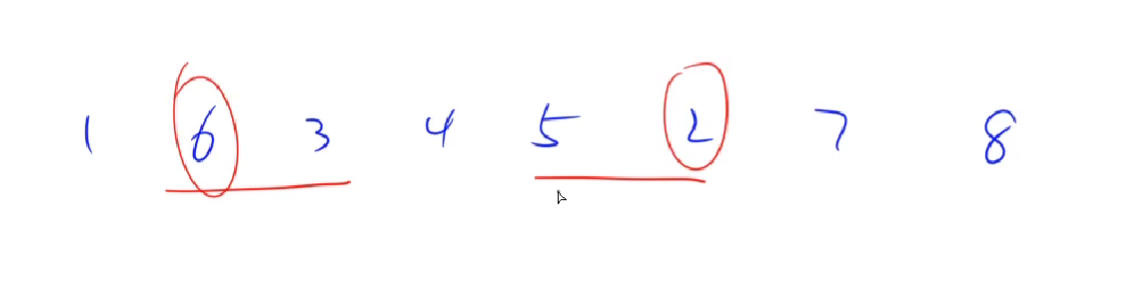 1 6 3 4 5 2 7 8